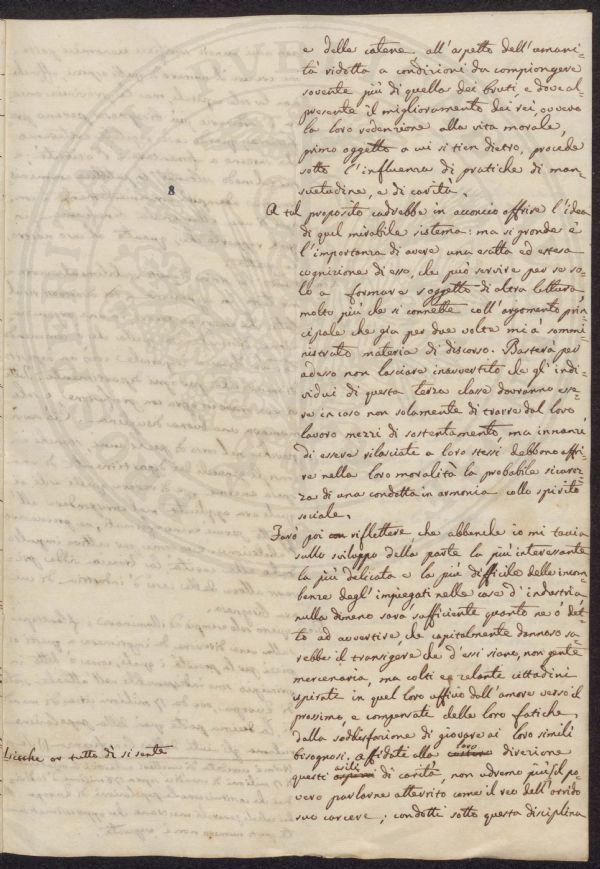 e delle catene all'aspetto dell'umani=
tà ridotta a condizioni da compiangere
sovente più di quella dei bruti, e dove al
presente il miglioramento dei rei, ovvero
la loro redenzione alla vita morale,
primo oggetto a cui si tien dietro, procede
sotto l'influenza di pratiche di man=
suetudine, e di carità.
8
A tal proposito cadrebbe in acconcio offrire l'idea
di quel mirabile sistema: ma si grande è
l'importanza di avere una esatta ed estesa
cognizione di esso, che può servire per se so=
lo a formare soggetto di altra lettura,
molto più che si connette coll'argomento prin=
cipale che già per due volte mi à sommi=
nistrato materia di discorso. Basterà per
adesso non lasciare inavvertito che gl'indi=
vidui di questa terza classe dovranno esse=
re in caso non solamente di trarre dal loro
lavoro mezzi di sostentamento, ma innanzi
di essere rilasciati a loro stessi debbono offri=
re nella loro moralità la probabile sicurez=
za di una condotta in armonia collo spirito
sociale.
Farò poi riflettere, che abbenche io mi taccia
sullo sviluppo della parte la più interessante
la più delicata e la più difficile delle incom=
benze degl'impiegati nelle case d'industria
nulla dimeno sarà sufficiente quanto ne ò det=
to ad avvertire, che capitalmente dannoso sa=
rebbe il transigere che d'essi siano, non gente
mercenaria, ma colti e zelante cittadini
ispirati in quel loro officio dall'amore verso il
prossimo, e compensati delle loro fatiche
dalla soddisfazione di giovare ai loro simili
bisognosi. Affidati alla loro direzione
questi asili di carità, non udremo più il po=
vero parlarne atterrito come il reo dell'orrido
suo carcere; condotti sotto questa disciplina
Sicche or tutto dì si sente